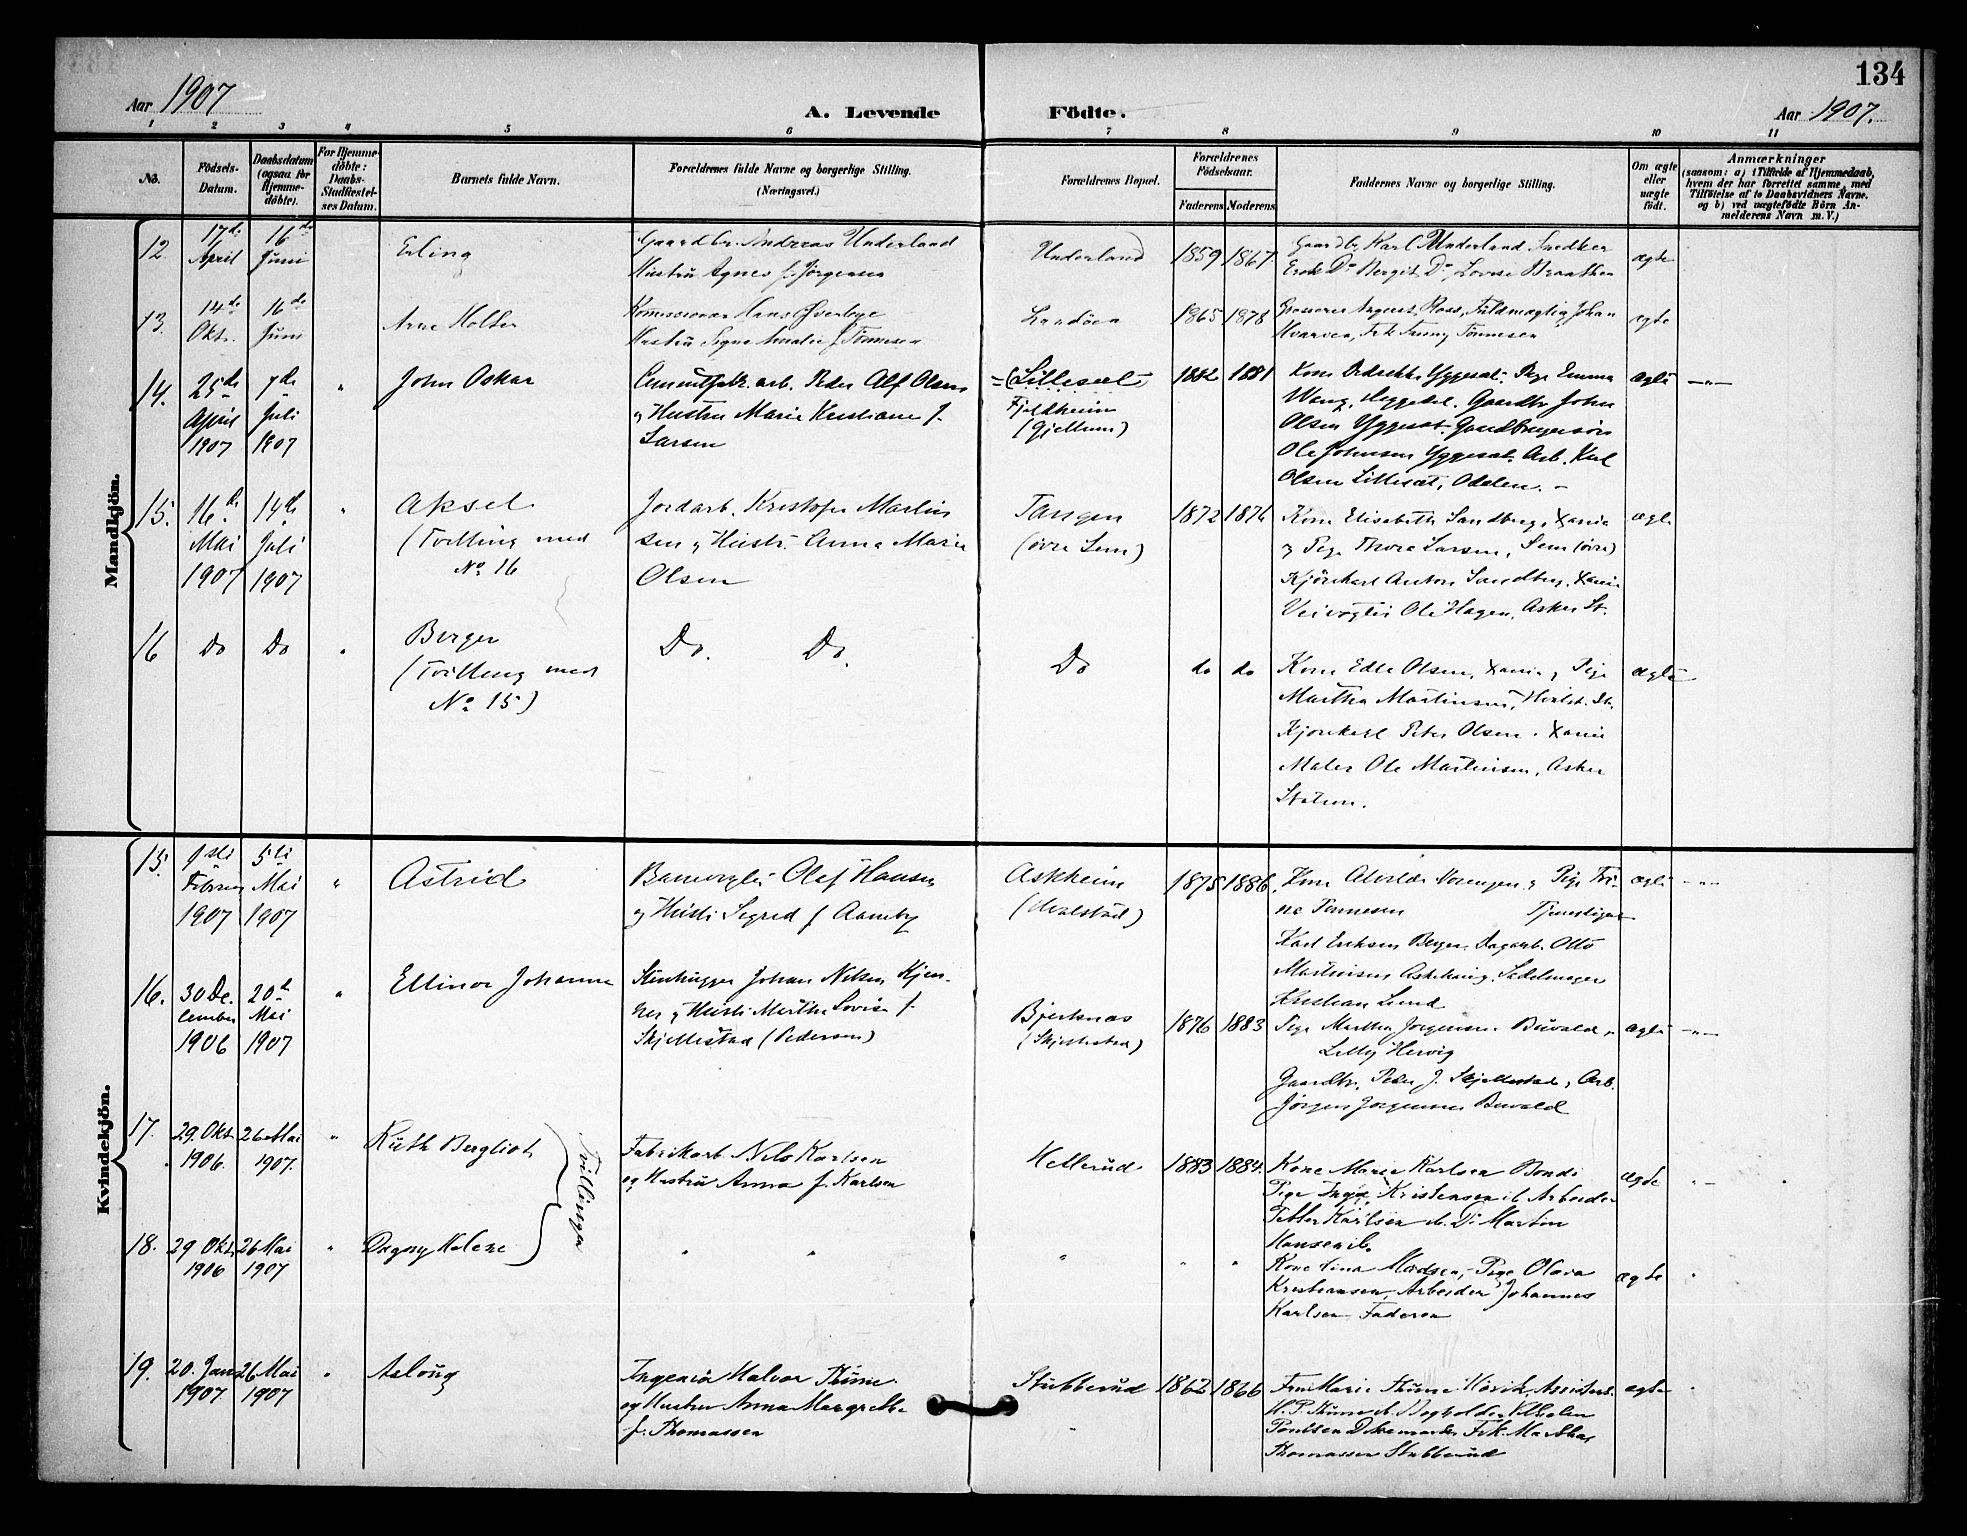 134
Aar 1907
A. Levende Födte.
Aar 1907.
1 2 3 4 5 6 7 8 9 10 11
No.
Födsels-Datum.
Daabsdatum (ogsaa for Hjemme-döbte).
For Hjemme-döbte: Daabs-Stadfæstel-ses Datum.
Barnets fulde Navn.
Forældrenes fulde Navne og borgerlige Stilling.
(Næringsvei.)
Forældrenes Bopæl.
Forældrenes Födselsaar.
Faderens Moderens
Faddernes Navne og borgerlige Stilling.
Om ægte eller uægte födt.
Anmærkninger
(saasom: a) i Tilfælde af Hjemmedaab,
hvem der har forrettet samme, med
Tilföielse af to Daabsvidners Navne.
og b) ved uægtefödte Börn An-
melderens Navn m. V.)
Mandkjön.
12. 17de April 16de Juni
Erling
Gaardbr. Andreas Underland
Hustru Agnes f. Jörgensen
Underland
1859 1867
Gaardbr Karl Underland Snedker
Do Bergit Do Lovise Braathen
ægte
13. 14de Okt. 16de Juni
Arne Holter
Hans Øverbye
Hustru Signe Amalie f. Tönnesen
1865 1878
Tönnesen
ægte
14. 25de April 1907 7de Juli 1907 "
John Oskar
Cementfabr. arb. Peder Alf Olsen
og Hustru Marie Kristiane f.
Larsen
(Lillesæt)
Fjeldheim
(Gjellum)
1882 1881
Kone Yggesæt. Pige Emma
Wang, Heggedal. Gaardbr John
Olsen Yggesæt. Gaardbrugersön
Ole Johnsen Yggesæt. Arb. Karl
Olsen Lillesæt, Odalen. -
ægte -"-
15. 16de Mai 1907 14de Juli 1907 "
Aksel
(Tvilling med
No 16
Jordarb. Kristofer Martin
sen og Hustr. Anna Marie
Olsen
Tangen
(övre Sem)
1872 1876
Kone Elisabeth Sandberg, Xania
og Pige Thora Larsen, Sem (övre)
Kjörekarl Anton Sandberg, Xania
Veivogter Ole Hagen, Asker St.
ægte
16 Do Do "
Berger
(Tvilling med
No 15)
Do. Do.
Do
do do
Kone Edle Olsen, Xania, Pige
Martha Martinsen, Hvalst. St.
Kjörekarl Peter Olsen. Xania
Maler Ole Martinsen, Asker
Station.
ægte
Kvindekjön.
15. 1ste Februar 1907 5te Mai 1907 "
Astrid
Banevogter Olaf Hansen
og Hustr. Sigrid f. Aamby
Askheim
(Hvalstad)
1875 1886.
Kone Alvilde og Pige
ne Tönnesen
Karl Eriksen Berger. Dagarb. Otto
Martinsen Sadelmager
Kristian Lund
ægte -"-
16. 30 December 1906 20de Mai 1907 "
Ellinor Johanne
Stenhugger Johan Nilsen
og Hustr. Marthe Lovise f.
Skjellestad (Pedersen)
Bjerknæs
(Skjellestad)
1876 1883
Pige Martha Jörgensen. Buvald,
Lilly Hervig
Gaardbr. Peder J. Skjellestad, Arb.
Jörgen Jörgensen Buvald
ægte -"-
17. 29. Okt. 1906. 26 Mai 1907. "
Ruth Bergliot
Tvillinger
Fabrikarb Nils Karlsen
og Hustru Anna f. Karlsen
Hellerud
1883 1884.
Kone Marie Karlsen Bondi
Pige Inga Kristensen ib Arbeider
Petter Karlsen ib. Do Martin
Hansen ib.
ægte "-
18. 29 Okt. 1906 26 Mai 1907 "
Dagny Helene
" "
"
" "
Kone Madsen, - Pige Olava
Kristiansen, Arbeider Johannes
Karlsen Faderen
ægte "
19. 20. Jan 1907 26 Mai 1907 "
Aslaug
Ingeniör Halvor Thune
og Hustru Anna Margrethe
f. Thomassen
Stubberud
"
1862 1866
Fru Marie Thune Hövik, Assistent
H. P. Thune ib. Bogholder Vilhelm
Poulsen Dikemark Frk. Martha
Thomassen Stubberud
ægte "